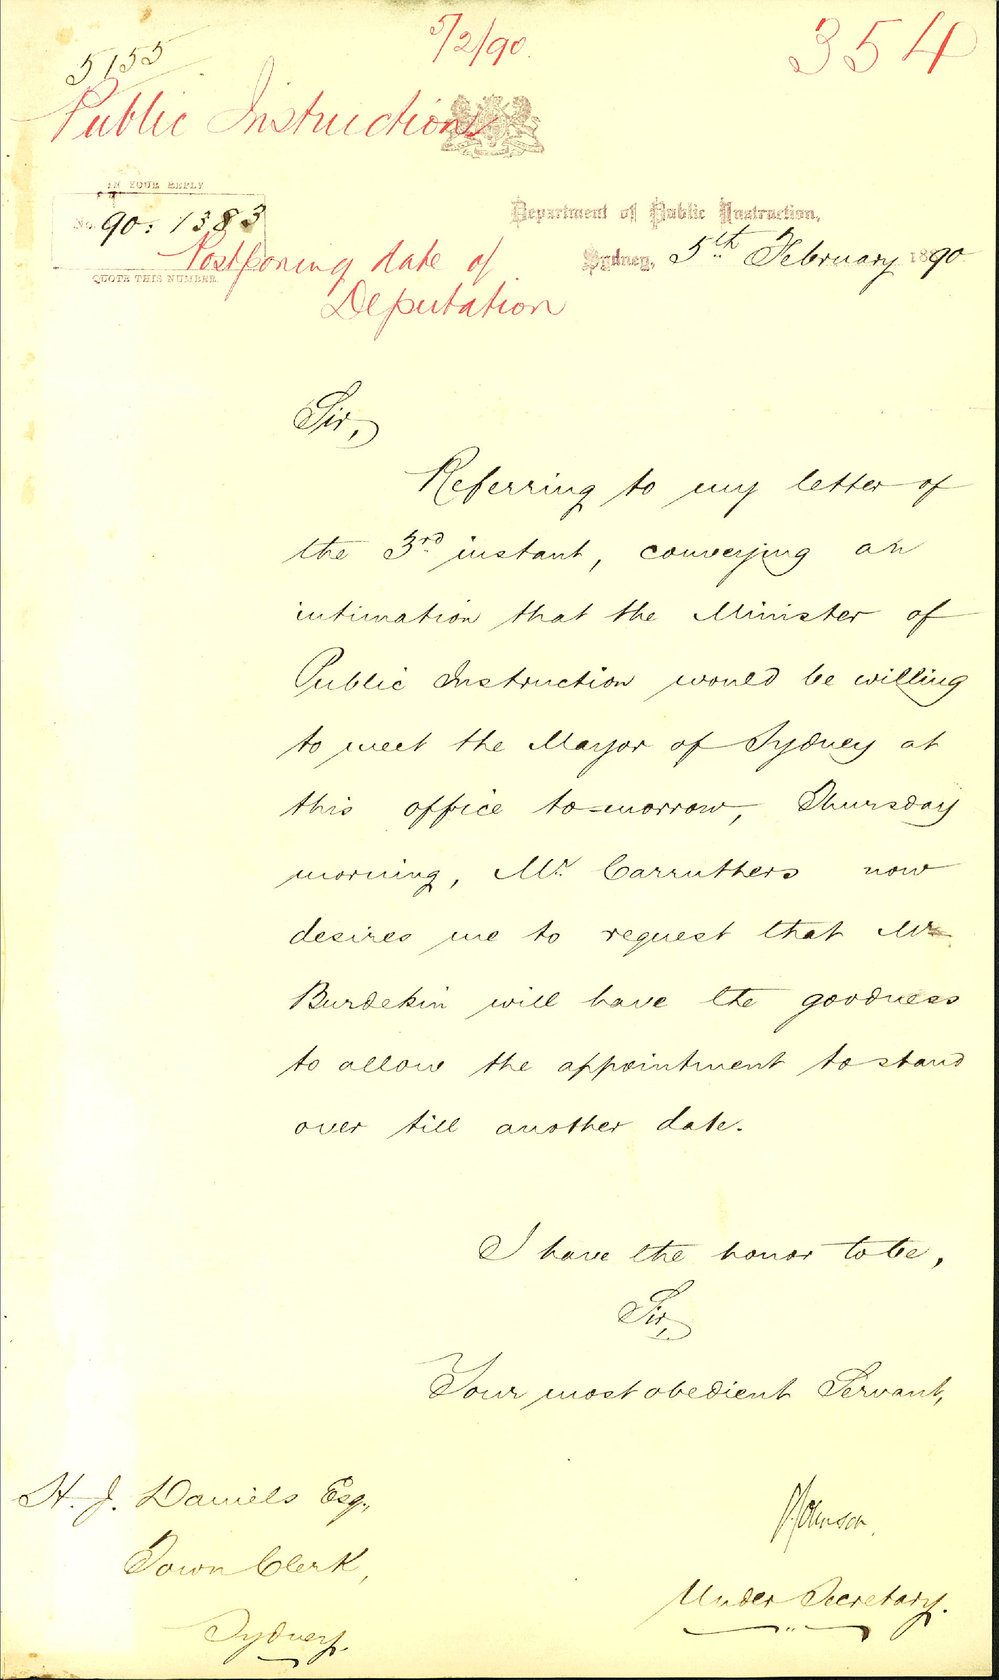 5155
5/2/90.
354
Public Instruction
IN YOUR REPLY
No. 90: 1383
QUOTE THIS NUMBER.
Department of Public Instruction,
Sydney, 5th February 1890
Postponing date of
Deputation
Sir,
Referring to my letter of
the 3rd instant, conveying an
intimation that the Minister of
Public Instruction would be willing
to meet the Mayor of Sydney at
this office to-morrow, Thursday
morning, Mr. Carruthers now
desires me to request that Mr
Burdekin will have the goodness
to allow the appointment to stand
over till another date.
I have the honor to be,
Sir,
Your most obedient Servant,
Johnson.
Under Secretary.
H. J. Daniels Esq.,
Town Clerk,
Sydney.